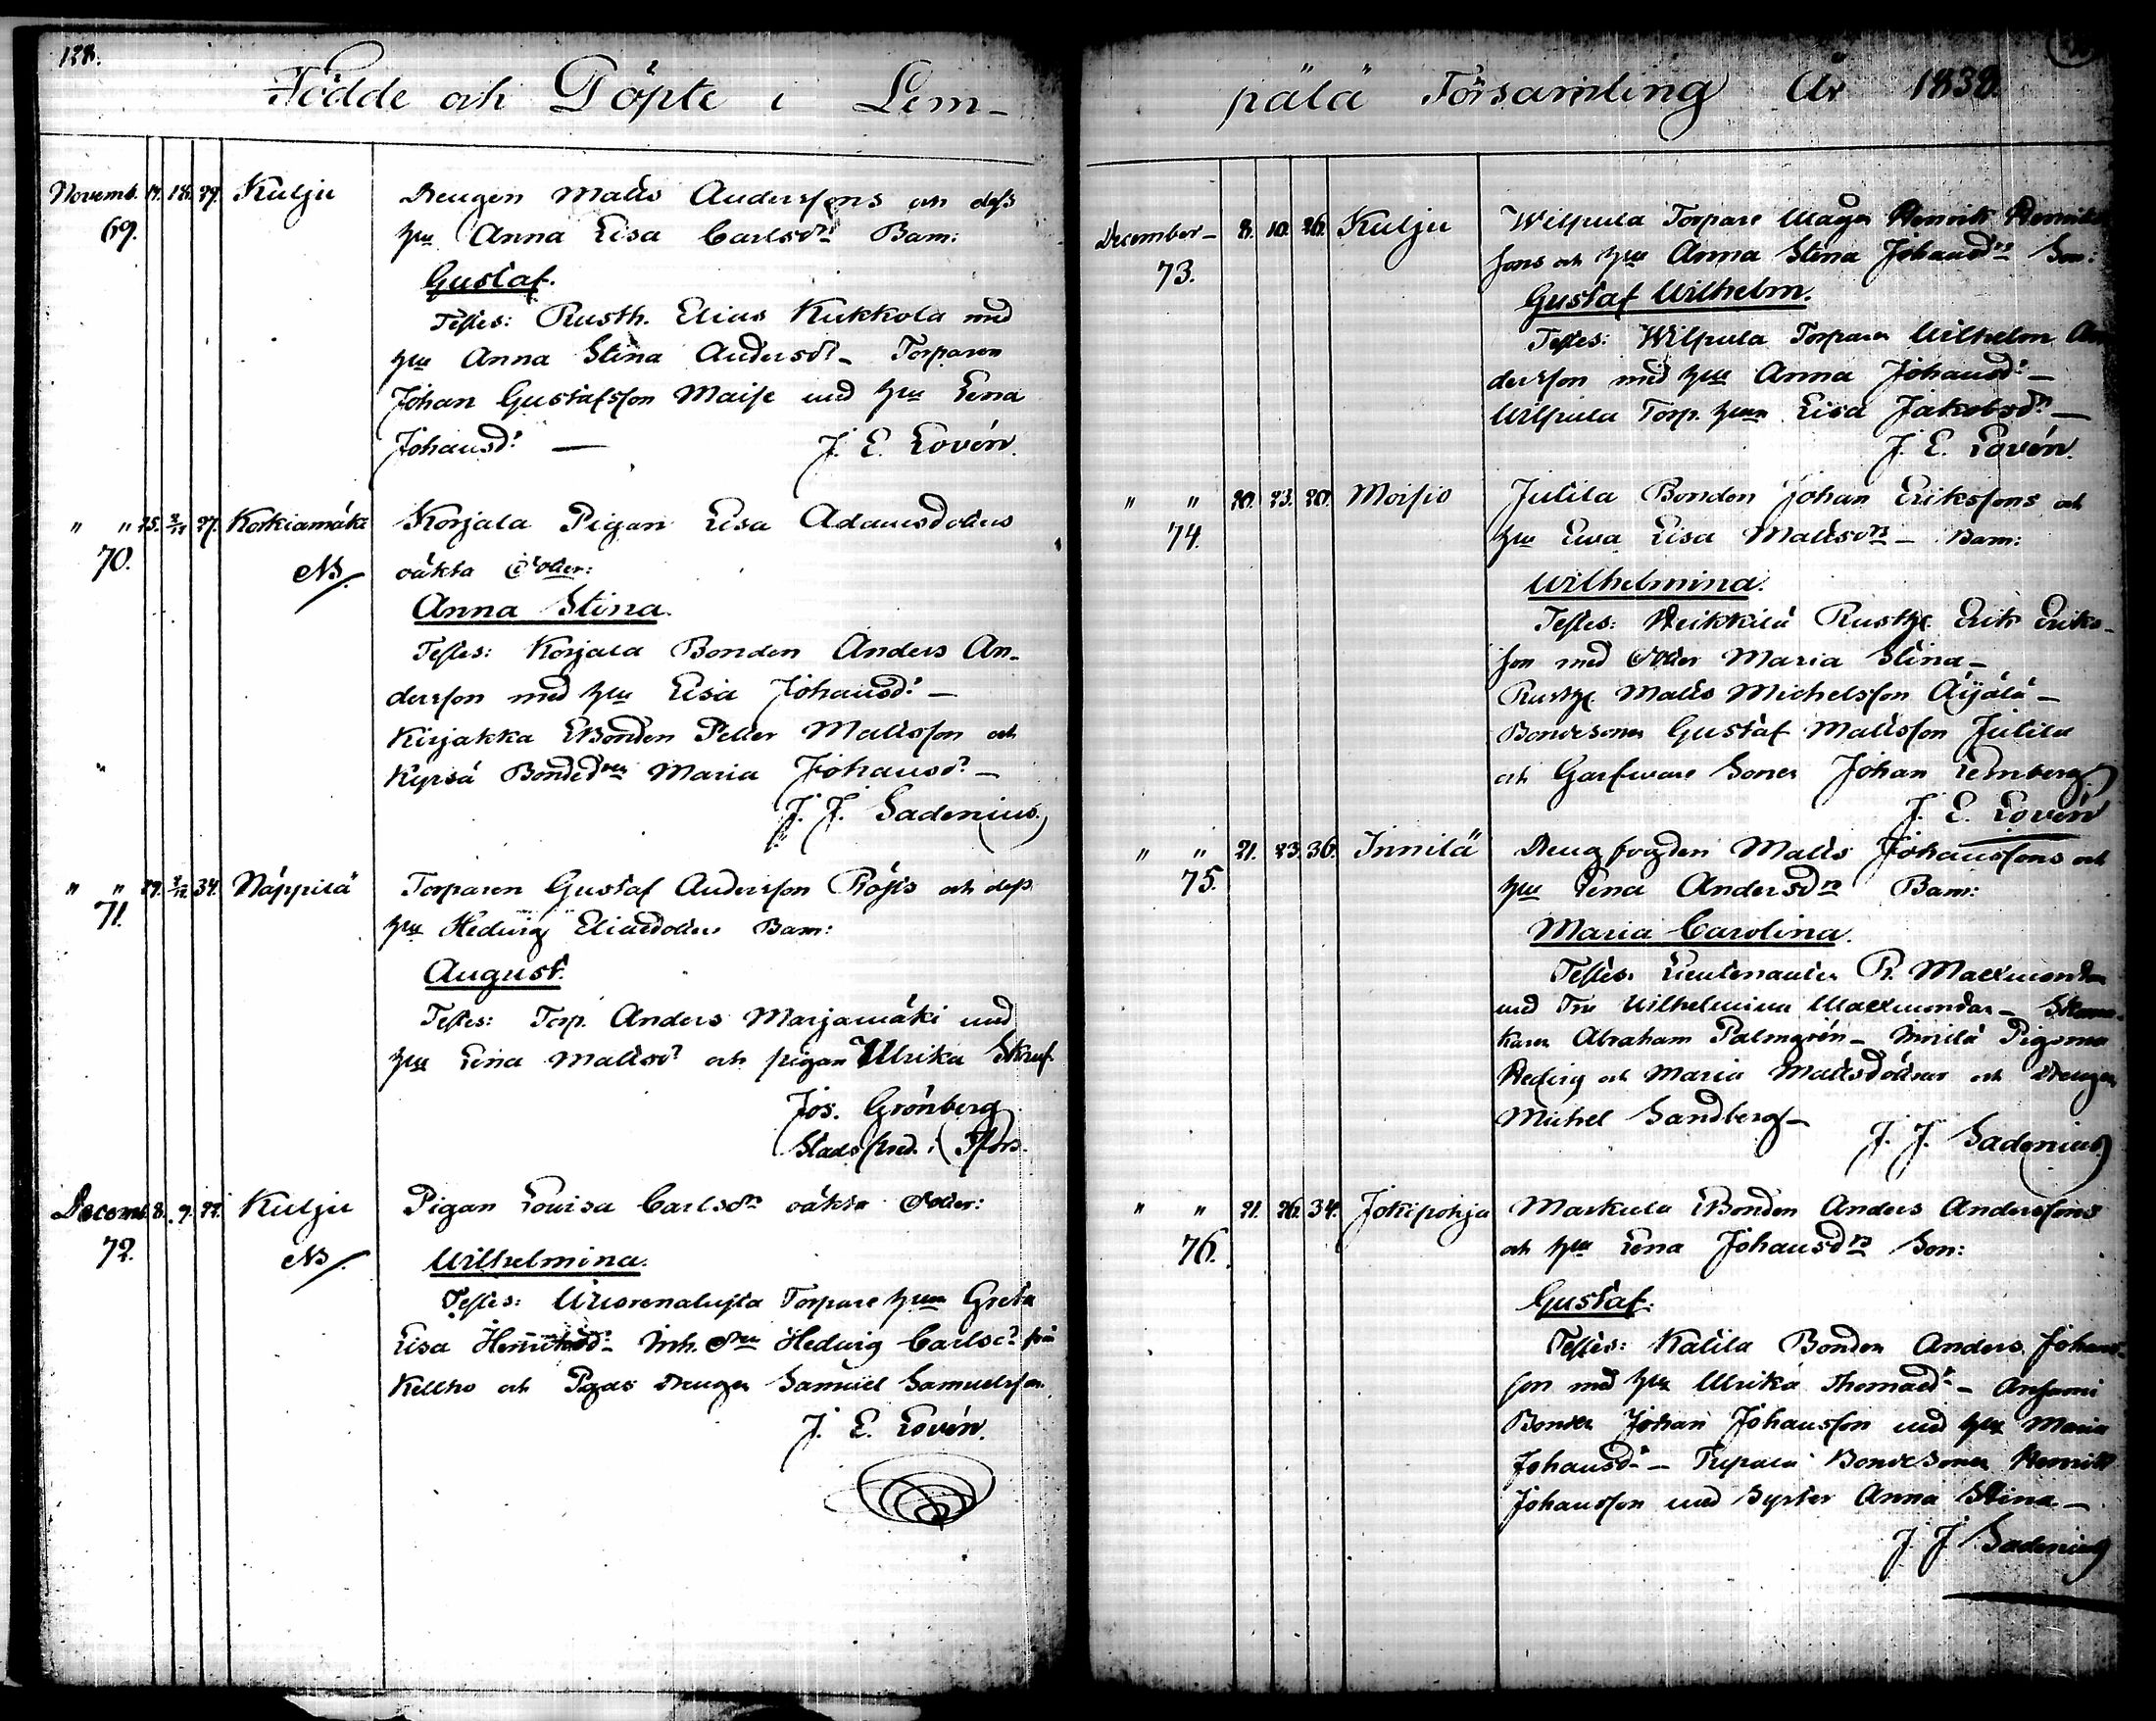 128.
Födde och Döpte i Lem-
Novemb. 17. 18. 27. Kulju Drengen Matts Anderssons och dess
69. hu Anna Lisa Carlsdrs Barn:
Gustaf.
Testes: Rusth. Elias Kukkola med
hu Anna Stina Andersdr - Torparen
Johan Gustafsson Maise med hu Lena
Johansdr — J. E. Lovén.
" " 25. 2/12 27. Korkiamäki Korjala Pigan Lisa Adamsdotters
70. NB. oäkta Dotter:
Anna Stina.
Testes: Korjala Bonden Anders An-
dersson med hu Lisa Johansdr -
Kirjakka Bonden Petter Mattsson och
Kyrsä Bondedrn Maria Johansdr -
J. J. Sadenius.
" " 27. 2/12 34. Näppilä Torparen Gustaf Andersson Röjis och dess
71. hu Hedwig Eliædotters Barn:
August.
Testes: Torp. Anders Marjamäki med
hu Lena Mattsdr och pigan Ulrika Skruf
Jos. Grönberg
Stadspred. i Tfors.
Decemb. 8. 9. 22. Kulju Pigan Lovisa Carlsdrs oäkta Dotter:
72. NB. Wilhelmina.
Testes: Torpare hun Greta
Lisa Henriksdr - Inh. Drn Hedwig Carlsdr från
Kelho och Pgds drengen Samuel Samuelsson.
J. E. Lovén.
pälä Församling År 1838.
December - 8. 10. 26. Kulju Wilpula Torpare Mågen Henrik Henriks
73. sons och hus Anna Stina Johansdrs Son:
Gustaf Wilhelm.
Testes: Wilpula Torparen Wilhelm An
dersson med hu Anna Johansdr -
Wilpula Torp. hun Lisa Jakobsdr —
J. E. Lovén.
" " 20. 23. 20. Moisio Jutila Bonden Johan Erikssons och
74. hu Ewa Lisa Mattsdrs - Barn:
Wilhelmina.
Testes: Heikkilä Rusth. Erik Eriks-
son med Dotter Maria Stina -
Rusth. Matts Michelsson Äijälä -
Bondesonen Gustaf Mattsson Jutila
och Garfware Sonen Johan Lemberg.
J. E. Lovén
" " 21. 23. 36. Innilä Drengfogden Matts Johanssons och
75. hu Lena Andersdrs Barn:
Maria Carolina.
Testes: Lieutenanten R. Maexmontan
med Fru Wilhelmina Maexmontan - Skoma-
karen Abraham Palmgrén - Innilä Pigorna
Hedwig och Maria Mattsdöttrar och Drengen
Michel Sandberg -
J. J. Sadenius
" " 21. 26. 34. Jokipohja Markula Bonden Anders Anderssons
76. och hu Lena Johansdrs Son:
Gustaf.
Testes: Katila Bonden Anders Johans-
son med hu Ulrika Thomædr - Ansami
Bonden Johan Johansson med hu Maria
Johansdr - Tupala Bondesonen Henrik
Johansson med Syster Anna Stina -
J. J. Sadenius